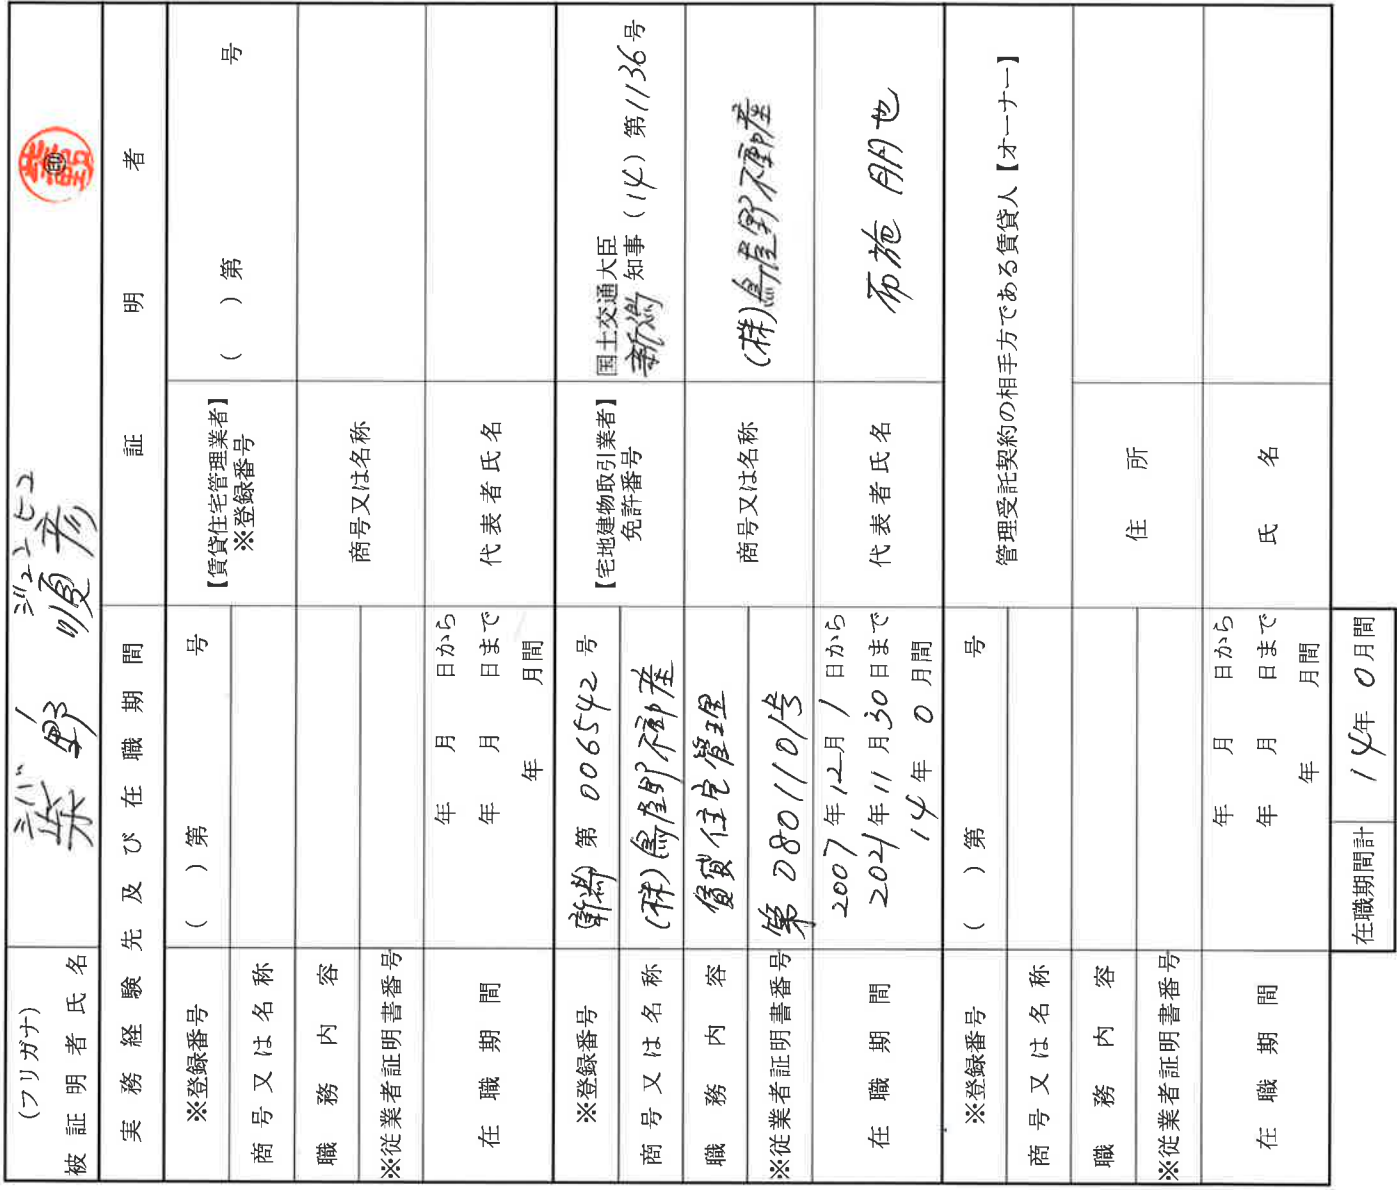 (フリガナ)
シバ ノ ジュンヒコ
被証明者氏名
柴野 順彦
㊞
実務経験先及び在職期間
証明者
※登録番号
( )第 号
【賃貸住宅管理業者】
※登録番号
( )第 号
商号又は名称
商号又は名称
職務内容
※従業者証明書番号
代表者氏名
在職期間
年 月 日から
年 月 日まで
年 月間
※登録番号
(新潟)第 006542 号
【宅地建物取引業者】
免許番号
国土交通大臣
新潟 知事 (14) 第1136号
商号又は名称
(株)鳥屋野不動産
職務内容
賃貸住宅管理
商号又は名称
(株)鳥屋野不動産
※従業者証明書番号
第0801101号
在職期間
2007年12月1日から
2021年11月30日まで
14年0月間
代表者氏名
布施 朋也
※登録番号
( )第 号
管理受託契約の相手方である賃貸人【オーナー】
商号又は名称
職務内容
住所
※従業者証明書番号
在職期間
年 月 日から
年 月 日まで
年 月間
氏名
在職期間計
14年 0月間